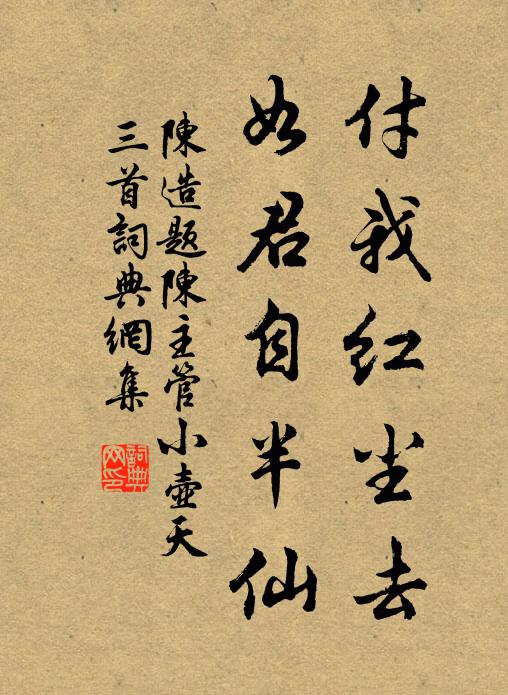 付我红尘去
如君自半仙
陳造題陳主管小壺天
三首詞典網集
詞典
网印